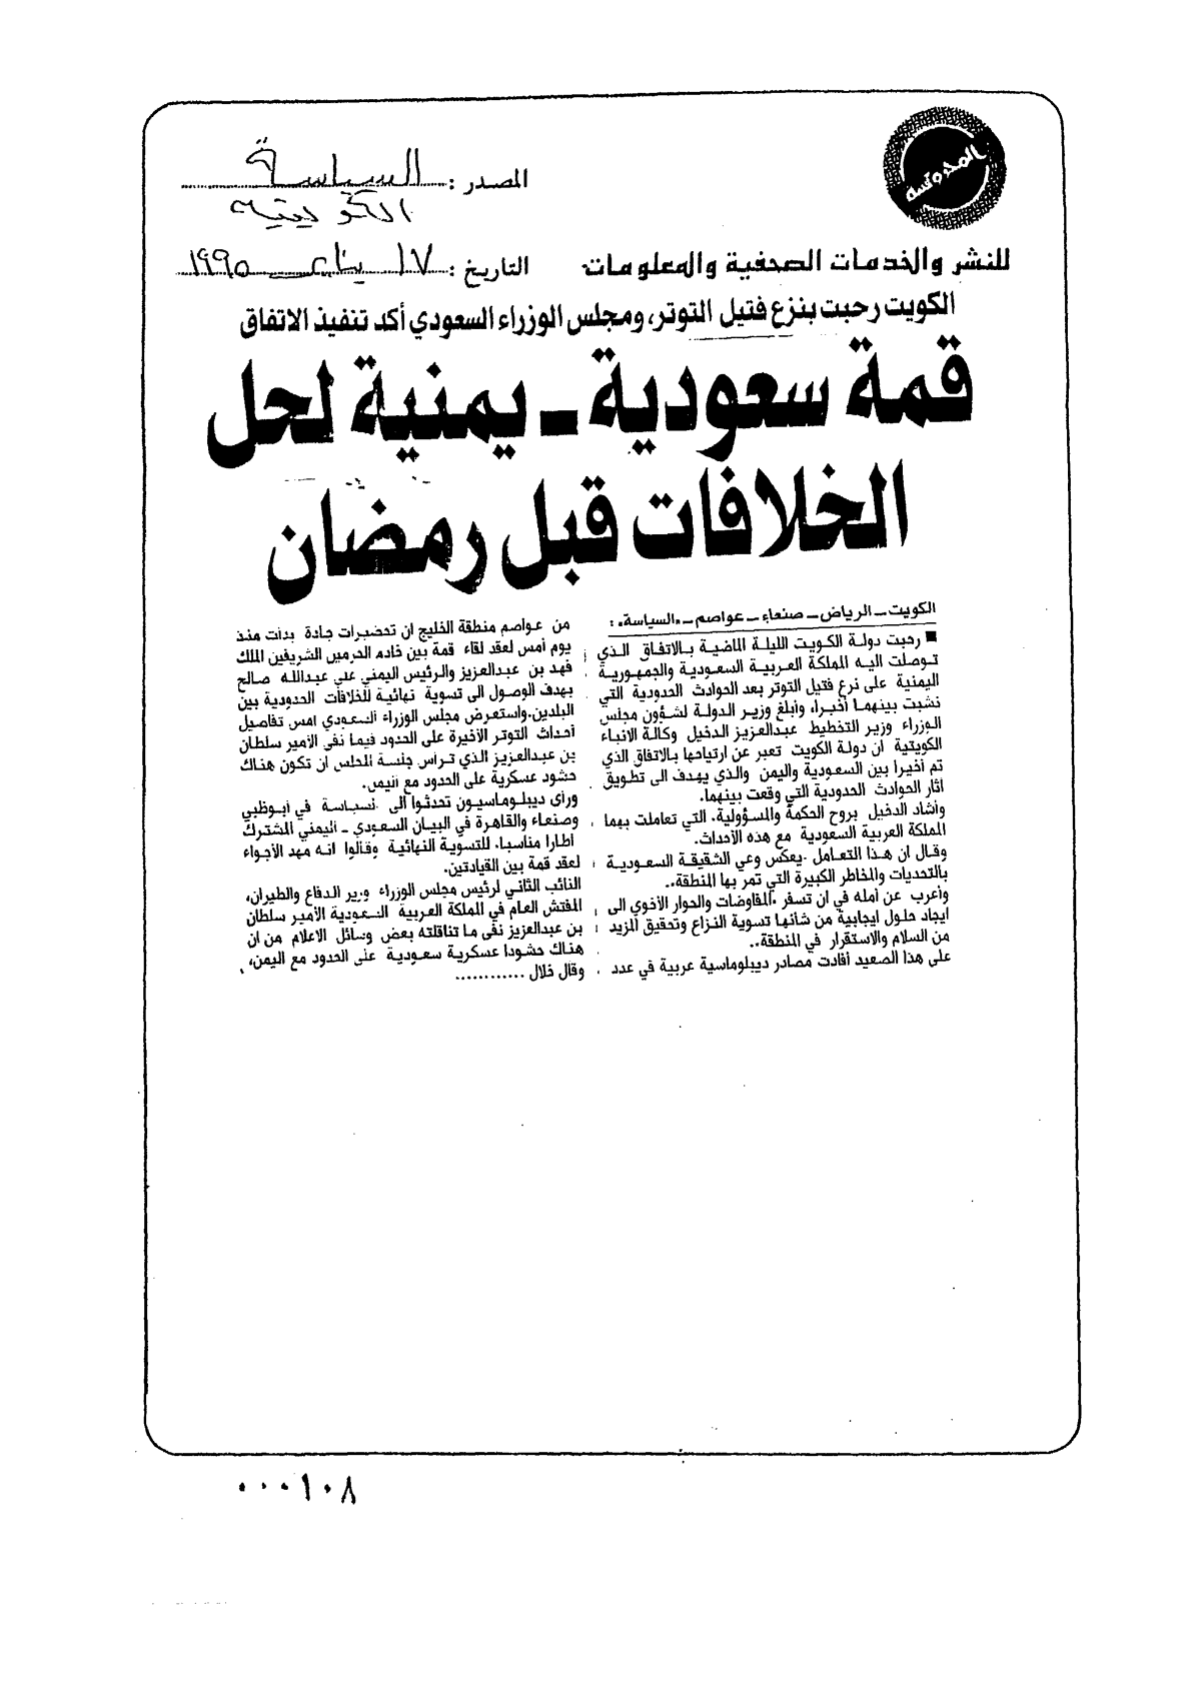 المحروسة
المصدر : السياسة
الكويتية
للنشر والخدمات الصحفية والمعلومات
التاريخ : ١٧ يناير ١٩٩٥
الكويت رحبت بنزع فتيل التوتر، ومجلس الوزراء السعودي أكد تنفيذ الاتفاق
قمة سعودية ـ يمنية لحل
الخلافات قبل رمضان
الكويت ـ الرياض ـ صنعاء ـ عواصم ـ «السياسة» :
■ رحبت دولة الكويت الليلة الماضية بالاتفاق الذي
توصلت اليه المملكة العربية السعودية والجمهورية
اليمنية على نزع فتيل التوتر بعد الحوادث الحدودية التي
نشبت بينهما أخيرا، وأبلغ وزير الدولة لشؤون مجلس
الوزراء وزير التخطيط عبدالعزيز الدخيل وكالة الانباء
الكويتية ان دولة الكويت تعبر عن ارتياحها بالاتفاق الذي
تم أخيرا بين السعودية واليمن والذي يهدف الى تطويق
آثار الحوادث الحدودية التي وقعت بينهما.
وأشاد الدخيل بروح الحكمة والمسؤولية، التي تعاملت بهما
المملكة العربية السعودية مع هذه الأحداث.
وقال ان هذا التعامل «يعكس وعي الشقيقة السعودية
بالتحديات والمخاطر الكبيرة التي تمر بها المنطقة».
وأعرب عن أمله في ان تسفر «المفاوضات والحوار الأخوي الى
ايجاد حلول ايجابية من شأنها تسوية النزاع وتحقيق المزيد
من السلام والاستقرار في المنطقة».
على هذا الصعيد أفادت مصادر ديبلوماسية عربية في عدد
من عواصم منطقة الخليج ان تحضيرات جادة بدأت منذ
يوم أمس لعقد لقاء قمة بين خادم الحرمين الشريفين الملك
فهد بن عبدالعزيز والرئيس اليمني علي عبدالله صالح
بهدف الوصول الى تسوية نهائية للخلافات الحدودية بين
البلدين.واستعرض مجلس الوزراء السعودي امس تفاصيل
أحداث التوتر الأخيرة على الحدود فيما نفى الأمير سلطان
بن عبدالعزيز الذي ترأس جلسة المجلس ان تكون هناك
حشود عسكرية على الحدود مع اليمن.
ورأى ديبلوماسيون تحدثوا الى «السياسة» في أبوظبي
وصنعاء والقاهرة في البيان السعودي ـ اليمني المشترك
اطارا مناسبا، للتسوية النهائية وقالوا انه مهد الأجواء
لعقد قمة بين القيادتين.
النائب الثاني لرئيس مجلس الوزراء وزير الدفاع والطيران،
المفتش العام في المملكة العربية السعودية الأمير سلطان
بن عبدالعزيز نفى ما تناقلته بعض وسائل الاعلام من ان
هناك حشودا عسكرية سعودية على الحدود مع اليمن،
وقال خلال ............
٠٠٠١٠٨